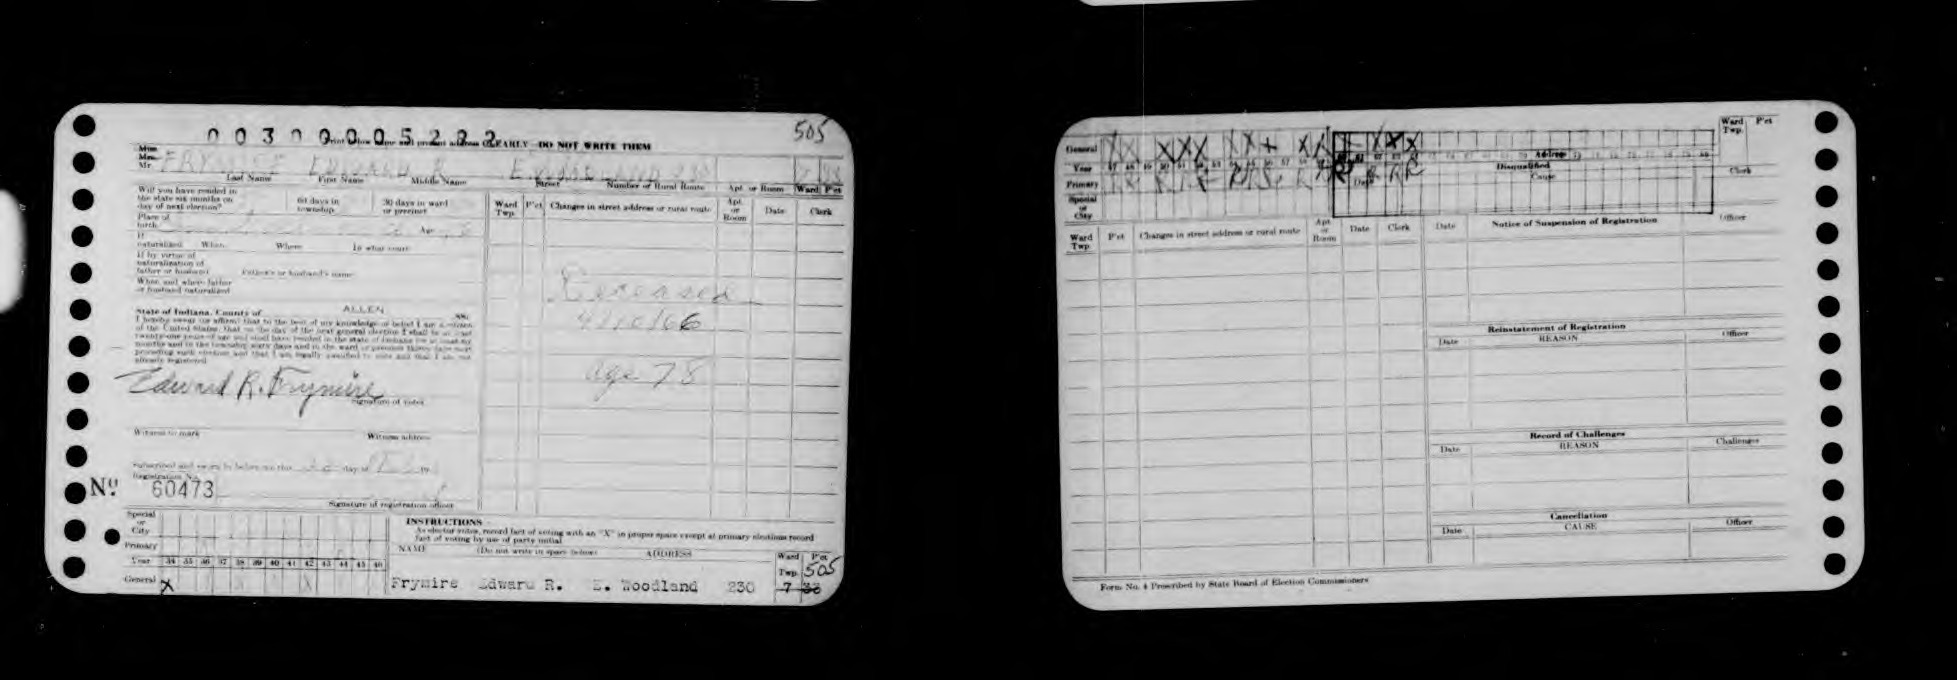 505
00300005292
Print below name and present address CLEARLY—DO NOT WRITE THEM
Miss
Mrs.
Mr. FRYMIRE EDWARD R. E. WOODLAND 230
Last Name First Name Middle Name Street Number or Rural Route Apt. or Room Ward P'ct
Will you have resided in
the state six months on
day of next election?
60 days in
township
30 days in ward
or precinct
Ward
Twp. P'ct Changes in street address or rural route Apt.
or
Room Date Clerk
Place of
birth Age
If
naturalized When Where In what court
If by virtue of
naturalization of
father or husband Father's or husband's name
When and where father
or husband naturalized
Deceased
4/10/66
age 78
State of Indiana, County of ALLEN SS:
I hereby swear (or affirm) that to the best of my knowledge or belief I am a citizen
of the United States, that on the day of the next general election I shall be at least
twenty-one years of age and shall have resided in the state of Indiana for at least six
months and in the township sixty days and in the ward or precinct thirty days next
preceding such election and that I am legally qualified to vote and that I am not
already registered.
Edward R. Frymire
Signature of voter
Witness to mark Witness address
Subscribed and sworn to before me this day of 19
Registration No.
Nº 60473
Signature of registration officer
Special
or
City
Primary
Year 34 35 36 37 38 39 40 41 42 43 44 45 46
General X
INSTRUCTIONS
As elector votes, record fact of voting with an "X" in proper space except at primary elections record
fact of voting by use of party initial
NAME (Do not write in space below) ADDRESS Ward
Twp. P'ct
505
Frymire Edward R. E. Woodland 230 7 33
General X X X X X X X + X X X X X
Year 47 48 49 50 51 52 53 54 55 56 57 58
Primary
Special
or
City
Address
Disqualified
Date Cause
Ward
Twp. P'ct
Clerk
Ward
Twp P'ct Changes in street address or rural route Apt.
or
Room Date Clerk
Date Notice of Suspension of Registration Officer
Reinstatement of Registration
Date REASON Officer
Record of Challenges
Date REASON Challenger
Cancellation
Date CAUSE Officer
Form No. 4 Prescribed by State Board of Election Commissioners